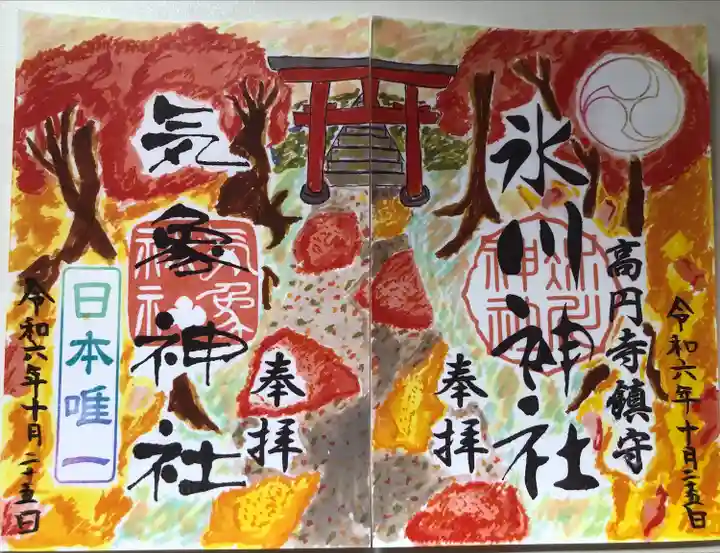 高円寺鎮守
氷川神社
奉拝
令和六年十月二十五日
氷川神社
気象神社
奉拝
日本唯一
令和六年十月二十五日
気象神社